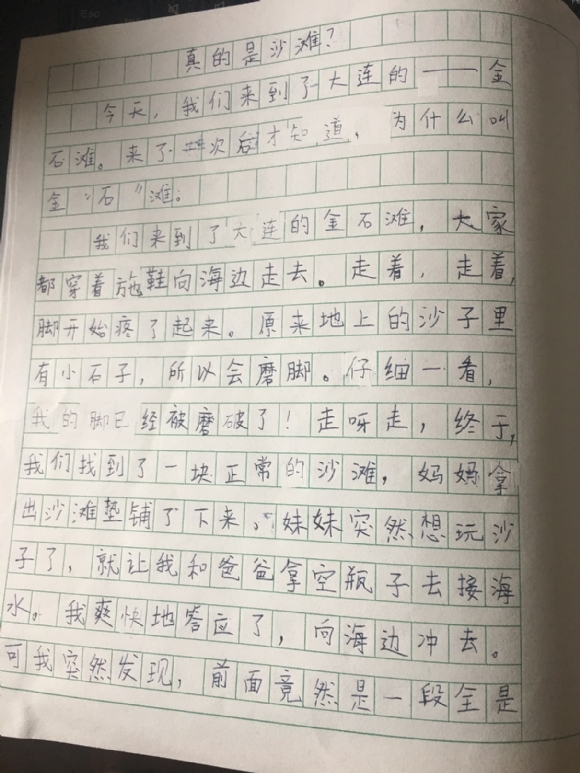 真的是沙滩？
今天，我们来到了大连的——金
石滩。来了一次后才知道，为什么叫
金“石”滩。
我们来到了大连的金石滩，大家
都穿着拖鞋向海边走去。走着，走着，
脚开始疼了起来。原来地上的沙子里
有小石子，所以会磨脚。仔细一看，
我的脚已经被磨破了！走呀走，终于，
我们找到了一块正常的沙滩，妈妈拿
出沙滩垫铺了下来。妹妹突然想玩沙
子了，就让我和爸爸拿空瓶子去接海
水。我爽快地答应了，向海边冲去。
可我突然发现，前面竟然是一段全是